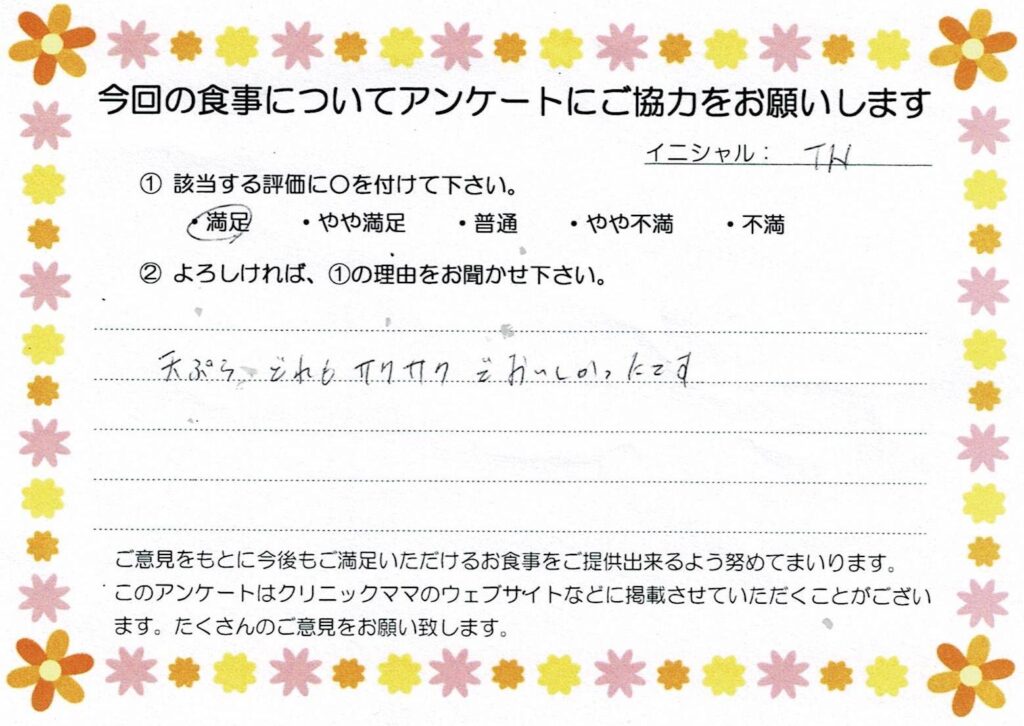 今回の食事についてアンケートにご協力をお願いします
イニシャル： TH
① 該当する評価に〇を付けて下さい。
・満足 ・やや満足 ・普通 ・やや不満 ・不満
② よろしければ、①の理由をお聞かせ下さい。
天ぷら どれも サクサク で おいしかったです
ご意見をもとに今後もご満足いただけるお食事をご提供出来るよう努めてまいります。
このアンケートはクリニックママのウェブサイトなどに掲載させていただくことがござい
ます。たくさんのご意見をお願い致します。